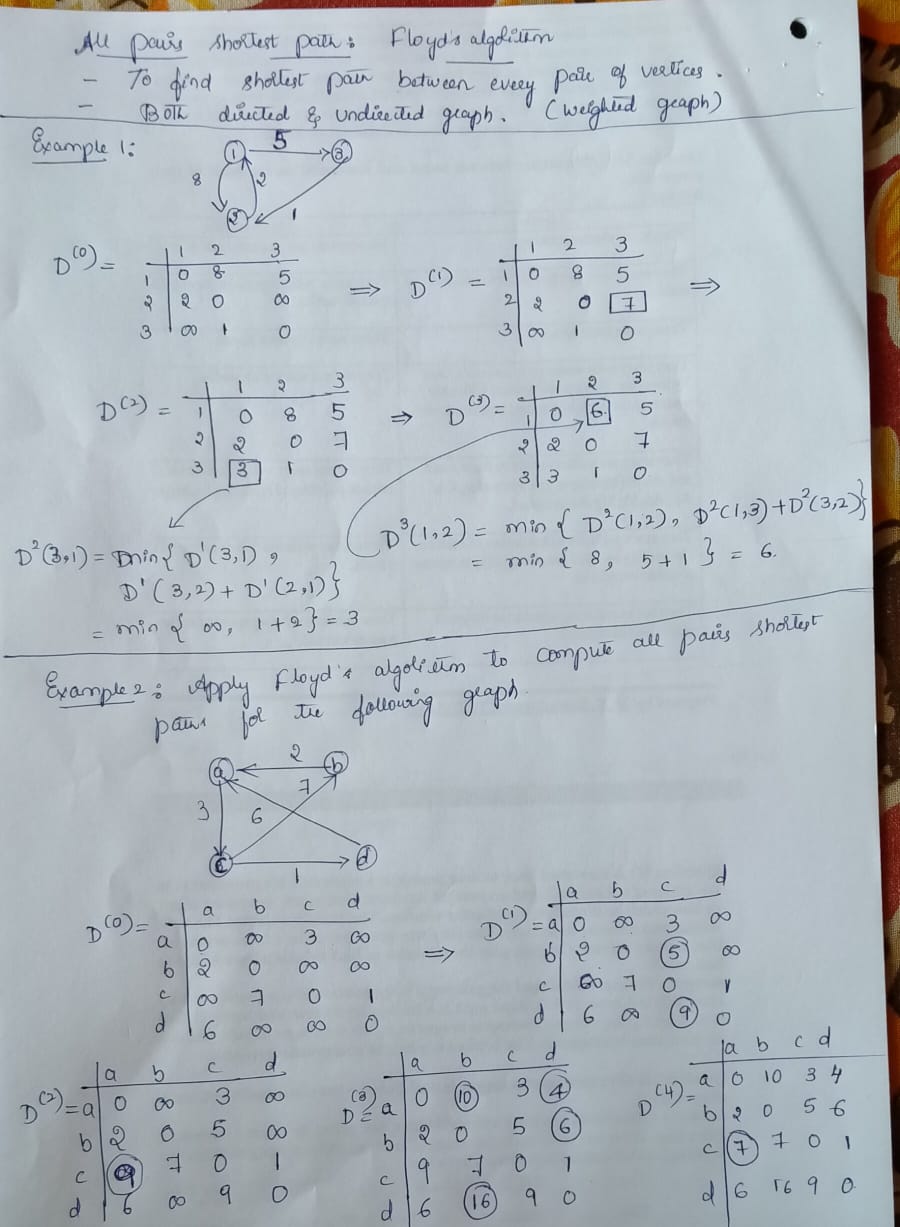 All pairs shortest path: Floyd's algorithm
- To find shortest path between every pair of vertices.
- Both directed & undirected graph. (weighted graph)
Example 1:
1 5 3
8 2
2 1
D(0)= 1 2 3
1 0 8 5
2 2 0 ∞
3 ∞ 1 0
⇒ D(1) = 1 2 3
1 0 8 5
2 2 0 7
3 ∞ 1 0
⇒
D(2) = 1 2 3
1 0 8 5
2 2 0 7
3 3 1 0
⇒ D(3)= 1 2 3
1 0 6 5
2 2 0 7
3 3 1 0
D²(3,1) = min{ D'(3,1),
D'(3,2) + D'(2,1)}
= min { ∞, 1+2} = 3
D³(1,2) = min { D²(1,2), D²(1,3)+D²(3,2)}
= min { 8, 5+1 } = 6.
Example 2: Apply Floyd's algorithm to compute all pairs shortest
paths for the following graph.
a 2 b
3 6 7
c 1 d
D(0)= a b c d
a 0 ∞ 3 ∞
b 2 0 ∞ ∞
c ∞ 7 0 1
d 6 ∞ ∞ 0
⇒ D(1)= a b c d
a 0 ∞ 3 ∞
b 2 0 5 ∞
c ∞ 7 0 1
d 6 ∞ 9 0
D(2)= a b c d
a 0 ∞ 3 ∞
b 2 0 5 ∞
c 9 7 0 1
d 6 ∞ 9 0
D(3)= a b c d
a 0 10 3 4
b 2 0 5 6
c 9 7 0 1
d 6 16 9 0
D(4)= a b c d
a 0 10 3 4
b 2 0 5 6
c 7 7 0 1
d 6 16 9 0